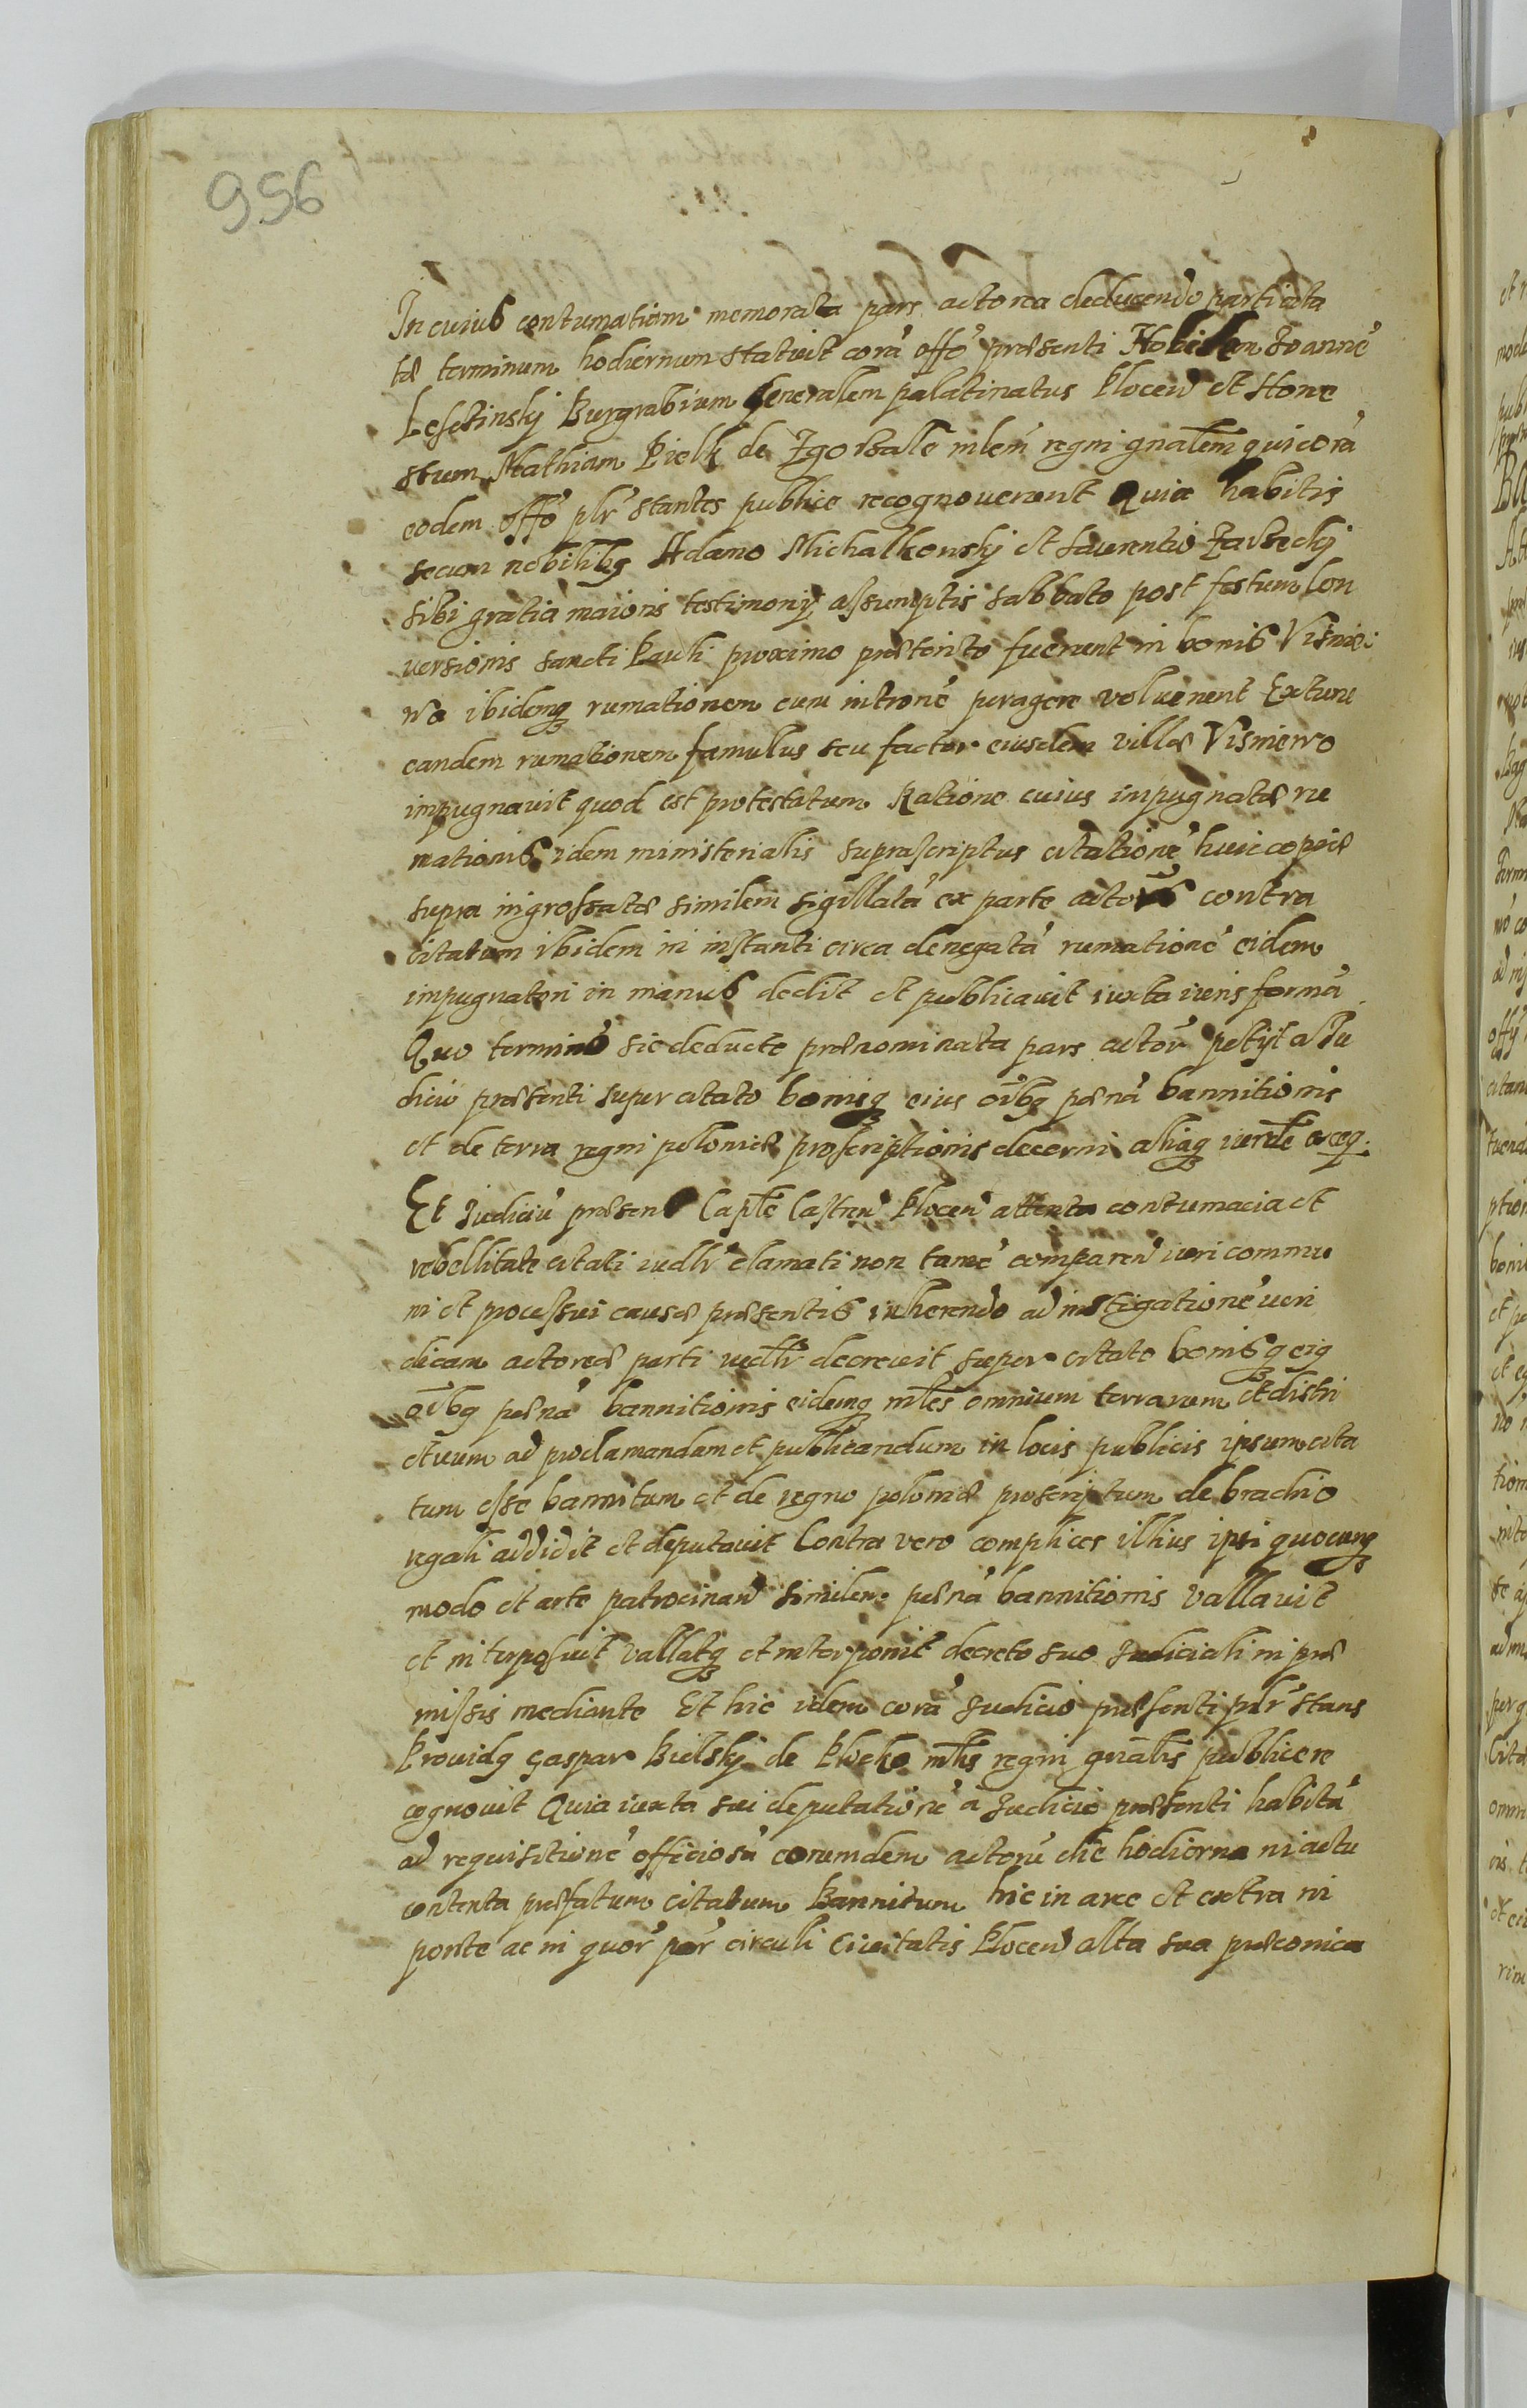 956
In cuius contumatiam memorata pars actorea deducendo parti cita
tæ terminum hodiernum statuit corā offō præsenti Nobilem Joannē
Lesctinskj Burgrabium Generalem palatinatus Plocen et Hone
stum Mathiam Pielk de Zgorzale mlem regni gnalem qui corā
eodem offō plr stantes publice recognoverunt Quia habitis
secum nobilibq Adamo Michalkowskj et Laurentio
sibi gratia maioris testimonij assumptis sabbato post festum Con
versionis sancti Pauli proximo præterito fuerunt in bonis Visnie
wo ibidemq rumationem cum intronē peragere voluerunt Extunc
eandem rumationem famulus seu factor eiusdem villæ Visniewo
impugnavit quod est protestatum Ratione cuius impugnatæ ru
mationis idem ministerialis suprascriptus citationē huic copiæ
supra ingrossatæ similem sigillatā ex parte actoris contra
citatum ibidem in instanti circa denegatā rumationē eidem
impugnatori in manus dedit et publicavit iuxta iuris formā
Quo termino sic deducto prænominata pars actor petijt a Ju
dicio præsenti super citato bonisq eius oībq pænā bannitionis
et de terra regni poloniæ proscriptionis decerni aliaq
Et Judiciū præsens Caple Castren Plocen attenta contumacia et
rebellitate citati iudlr clamati non tamē comparen iuri commu
ni et processui causæ præsentis inherendo ad instigationē veri
dicam actoreæ parti iudlr decrevit super citato bonisq eiq
oībq pænā bannitionis eidemq mles omnium terrarum et distri
ctuum ad proclamandam et publicandum in locis publicis ipsum cita
tum esse bannitum et de regno poloniæ proscriptum de brachio
regali addidit et deputavit Contra vero complices illius ipsi quocunq
modo et arte patrocinan similem pænā bannitionis vallavit
et interposuit vallatq et interponit decreto suo Judiciali in præ
missis mediante Et hic idem corā Judicio præsenti plr stans
Providq Gaspar Bielskj de Plocko mlis regni gnalis publice re
cognovit Quia iuxta sui deputationē a Judicio præsenti habitā
ad requisitionē officiosā eorumdem actorū die hodierna in actu
contenta præfatum citatum Bannitum hic in arce et extra in
ponte ac in quor par circuli Civitatis Plocen alta sua præconica